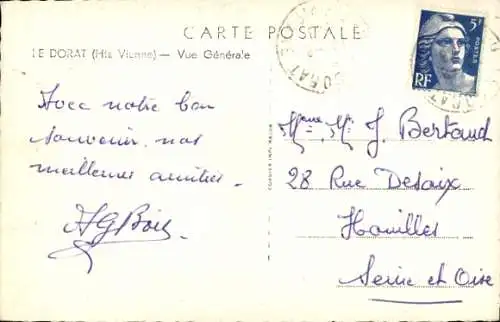 CARTE POSTALE
LE DORAT (Hte Vienne) — Vue Générale
5F
POSTES
RF
Avec notre bon
souvenir, nos
meilleures amitiés.
Mme, Mr J. Bertaud
28 Rue Desaix
Houilles
Seine et Oise